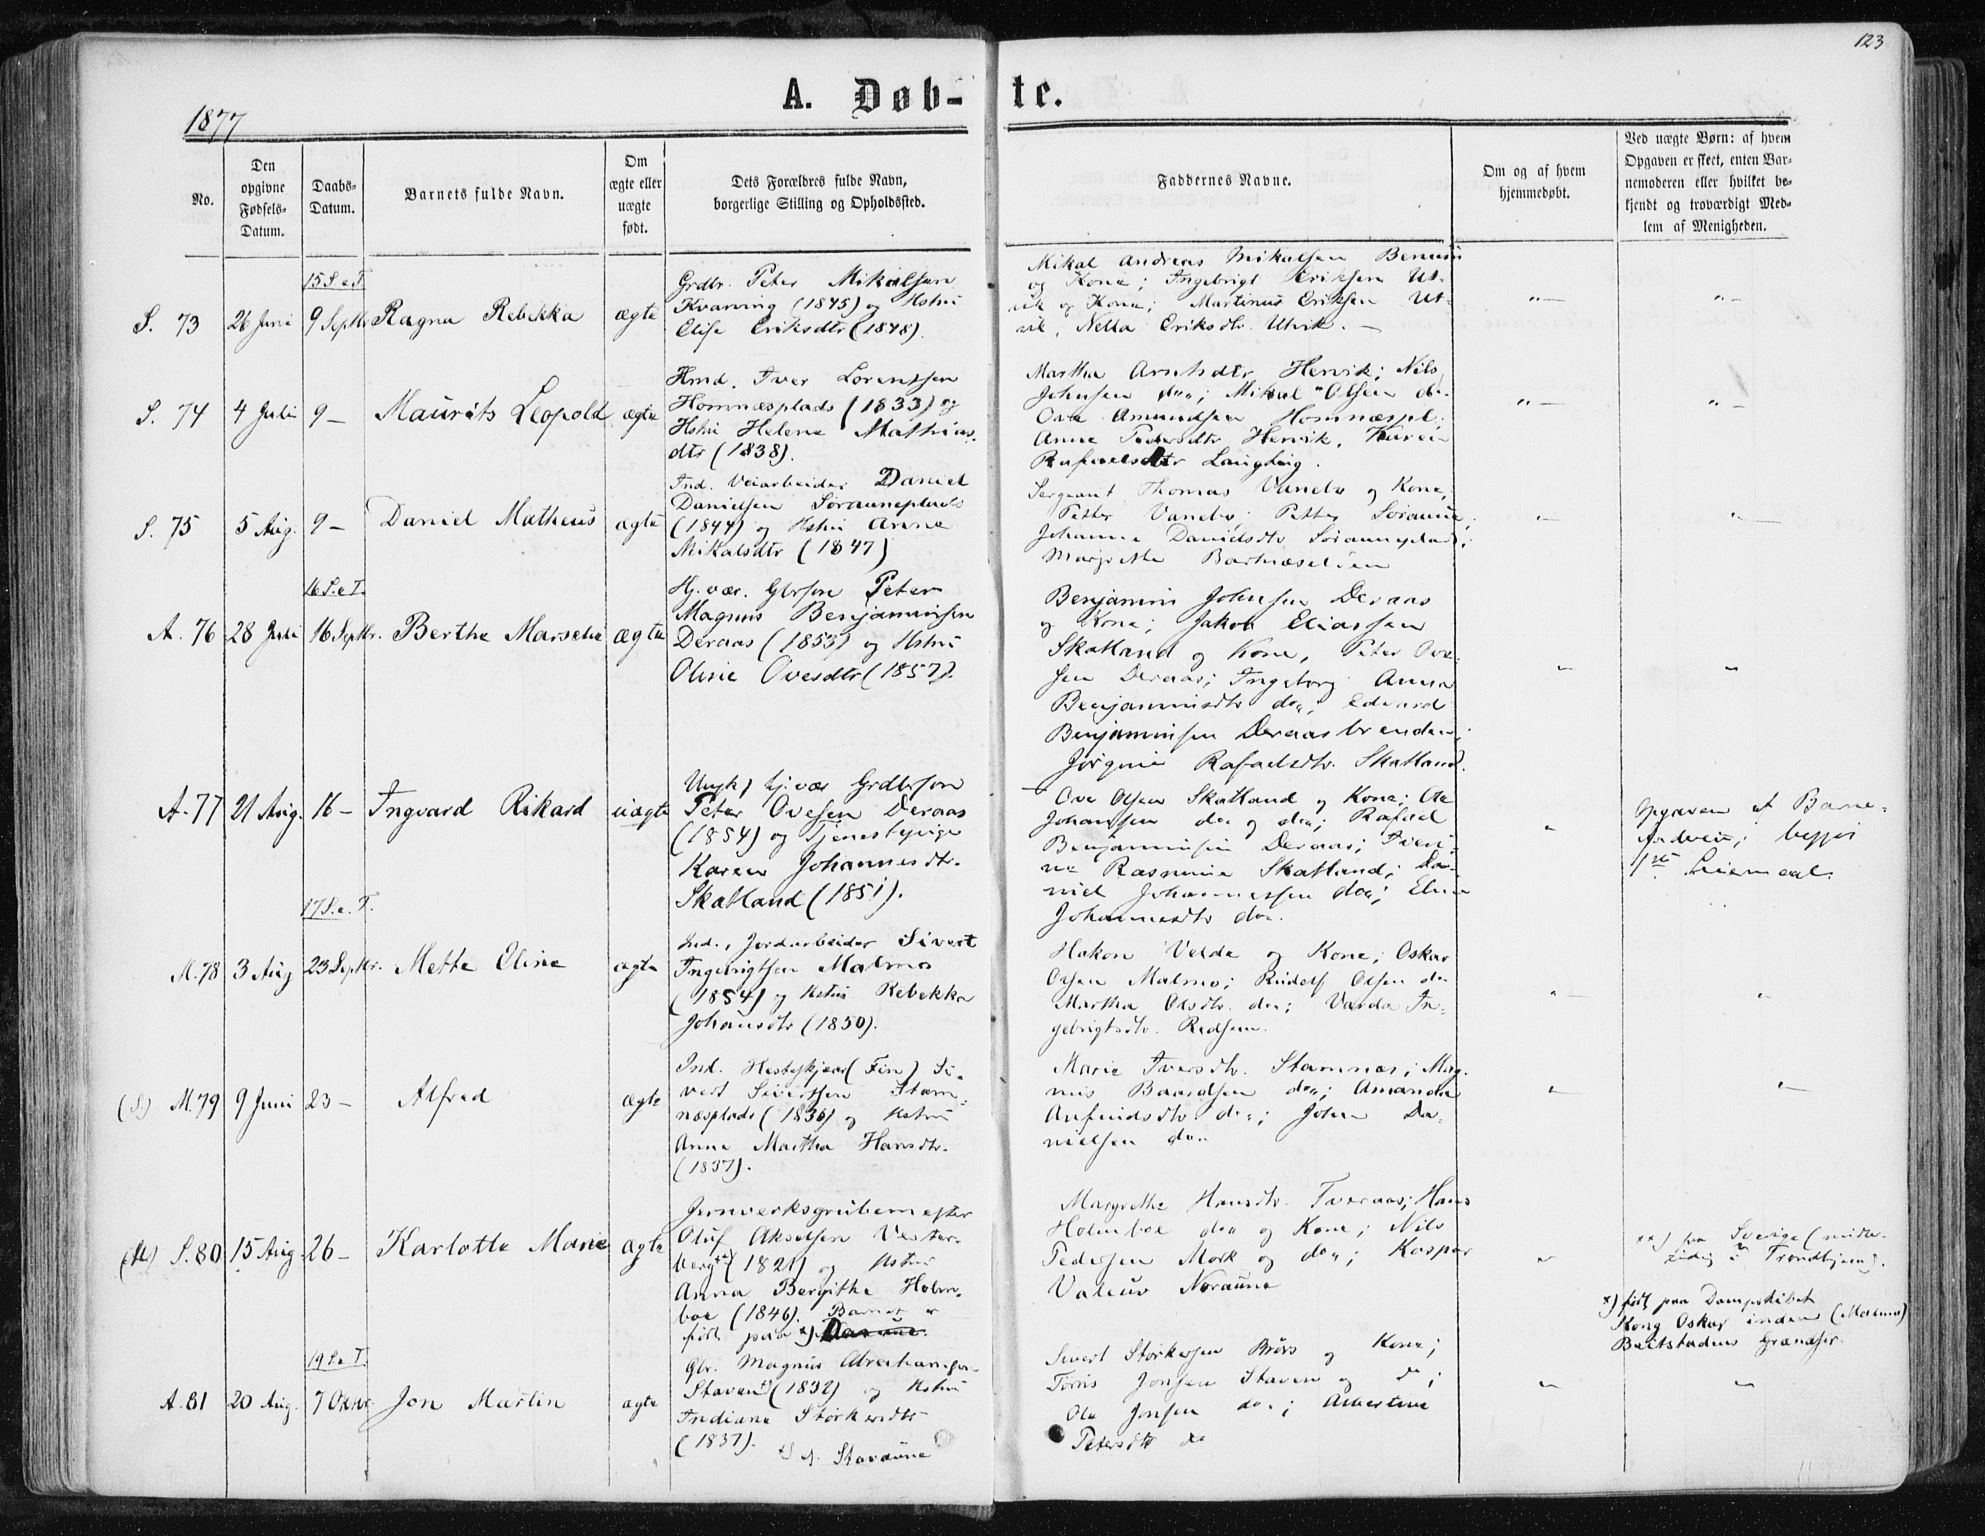 123
A. Døb-
te.
1877
No.
Den
opgivne
Fødsels-
Datum.
Daabs-
Datum.
Barnets fulde Navn.
Om
ægte eller
uægte
født.
Dets Forældres fulde Navn,
borgerlige Stilling og Opholdssted.
Faddernes Navne.
Om og af hvem
hjemmedøbt.
Ved uægte Børn: af hvem
Opgaven er skeet, enten Bar-
nemoderen eller hvilket be-
kjendt og troværdigt Med-
lem af Menigheden.
15 S. e. T.
S. 73
26 Juni
9 Septbr
Ragna Rebekka
ægte
Grdbr. Peter Mikalsen
Kvarning (1845) og Hstru
Elise Eriksdtr (1848).
Mikal Andreas Mikalsen
og Kone; Ingebrigt Eriksen Ut-
vik og Kone; Martinus Eriksen Ut-
vik, Nella Eriksdtr. Utvik. —
S. 74
4 Juli
9 —
Maurits Leopold
ægte
Hmd. Iver Lorentsen
Homnæsplads (1833) og
Hstru Helene Mathias-
dtr (1838).
Martha Arntsdtr Hervik; Nils
Johnsen do"; Mikal Olsen do
Ove Amundsen Homnæspl;
Anne Pedersdtr Hervik, Karen
Rafaelsdtr
S. 75
5 Aug.
9 —
Daniel Matheus
ægte
Ind. Veiarbeider Daniel
Danielsen Sørauneplads
(1844) og Hstru Anna
Mikalsdtr (1847)
Sergeant Thomas Vanebo og Kone,
Petter Vanebo; Petter Søraune;
Johanna Danielsdtr Sørauneplads;
Margrethe
16 S. e. T.
A. 76
28 Juli
16 Septbr.
Berthe Marselie
ægte
Hj.vær. Gbrsøn Peter
Magnus Benjaminsen
Deraas (1853) og Hstru
Oline Ovesdtr (1857).
Benjamin Johnsen Deraas
og Kone; Jakob Eliassen
Skatland og Kone, Peter Ove-
sen Deraas; Ingeborg Anna
Benjaminsdtr do", Edvard
Benjaminsen Deraasbrenden;
Jørgine Rafaelsdtr. Skatland.
A. 77
21 Aug.
16 —
Ingvard Rikard
uægte
Ungk, hj.vær Grdbrsøn
Peter Ovesen Deraas
(1854) og Tjenestepige
Karen Johannesdtr.
Skatland (1851).
Ove Olsen Skatland og Kone; Ole
Johansen do" og do"; Rafael
Benjaminsen Deraas; Iveri-
ne Rasmine Skatland; Da-
niel Johannessen do"; Elen
Johannesdtr do".
Opgaven af Barne-
faderen; begges
1ste Leiermaal.
17 S. e. T.
M. 78
3 Aug
23 Septbr.
Mette Eline
ægte
Ind., Jordarbeider Sivert
Ingebrigtsen Malmo
(1854) og Hstru Rebekka
Johansdtr (1850).
Hakon Velde og Kone; Oskar
Olsen Malmo; Rudolf Olsen do
Martha Olsdtr. do"; Varda In-
gebrigtsdtr.
(S.) M. 79
9 Juni
23 —
Alfred
ægte
Ind. Hesteskjær (Fin) Si-
vert Sivertsen Stam-
næsplads (1836) og Hstru
Anne Martha Hansdtr.
(1837).
Marie Iversdtr. Stamnæs; Mag-
nus Baardsen do"; Amanda
Arfindsdtr do"; Johan Da-
nielsen do"
(M) S. 80
15 Aug
26 —
Karlotte Marie
ægte
Jernverksgrubemester
Oluf Akselsen Vester-
berg**) (1821) og Hstru
Anna Bergithe Holm-
boe (1846). Barnet er
født paa *)
Margrethe Hansdtr. Tveraas; Hans
Holmboe do" og Kone; Nils
Pedersen Mork og do"; Kaspar
Valeur Noraune
**) fra Sverige (midler-
tidig i Trondhjem).
*) født paa Dampskibet
Kong Oskar inden (Malmo)
Beitstadens Grændser.
19 S. e. T.
A. 81
20 Aug.
7 Oktbr
Jon Martin
ægte
Gbr. Magnus Abrahamsen
Staven†) (1832) og Hstru
Indiana Størkersdtr
(1837).
†) A. Stavaune
Sivert Størkersen Brørs og Kone;
Tørris Jonsen Staven og do;
Ole Jonsen do"; Albertine
Petersdtr do